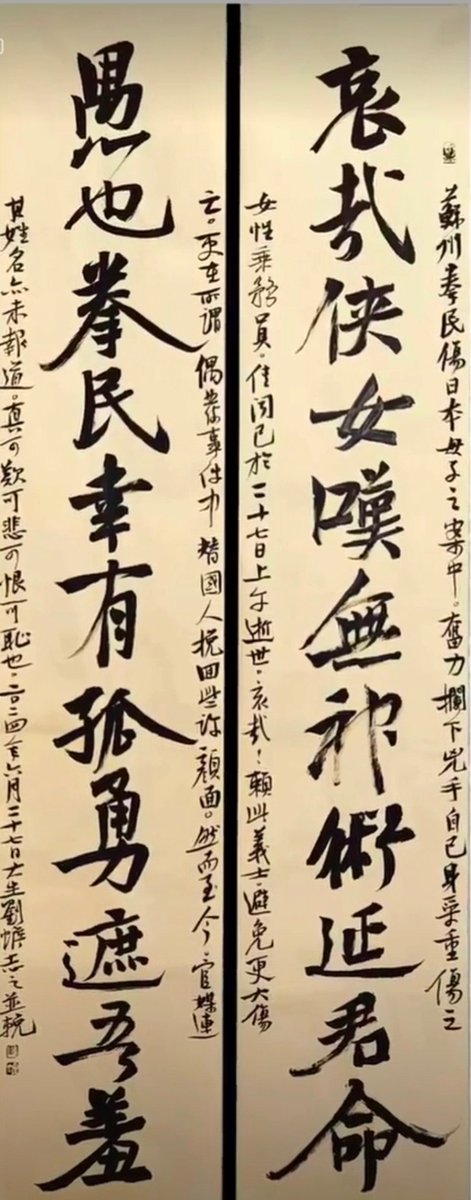 蘇州拳民傷日本母子之案中。奮力攔下兇手自己身受重傷之
哀哉俠女嘆無神術延君命
女性乘務員。聞已於二十七日上午逝世。哀哉！賴此義士避免更大傷
亡。更在所謂偶發事件中替國人挽回些許顏面。然而至今官媒連
愚也拳民幸有孤勇遮吾羞
其姓名亦未報道。真可歎可悲可恨可恥也。二〇二四年六月二十七日大生劉志之並輓